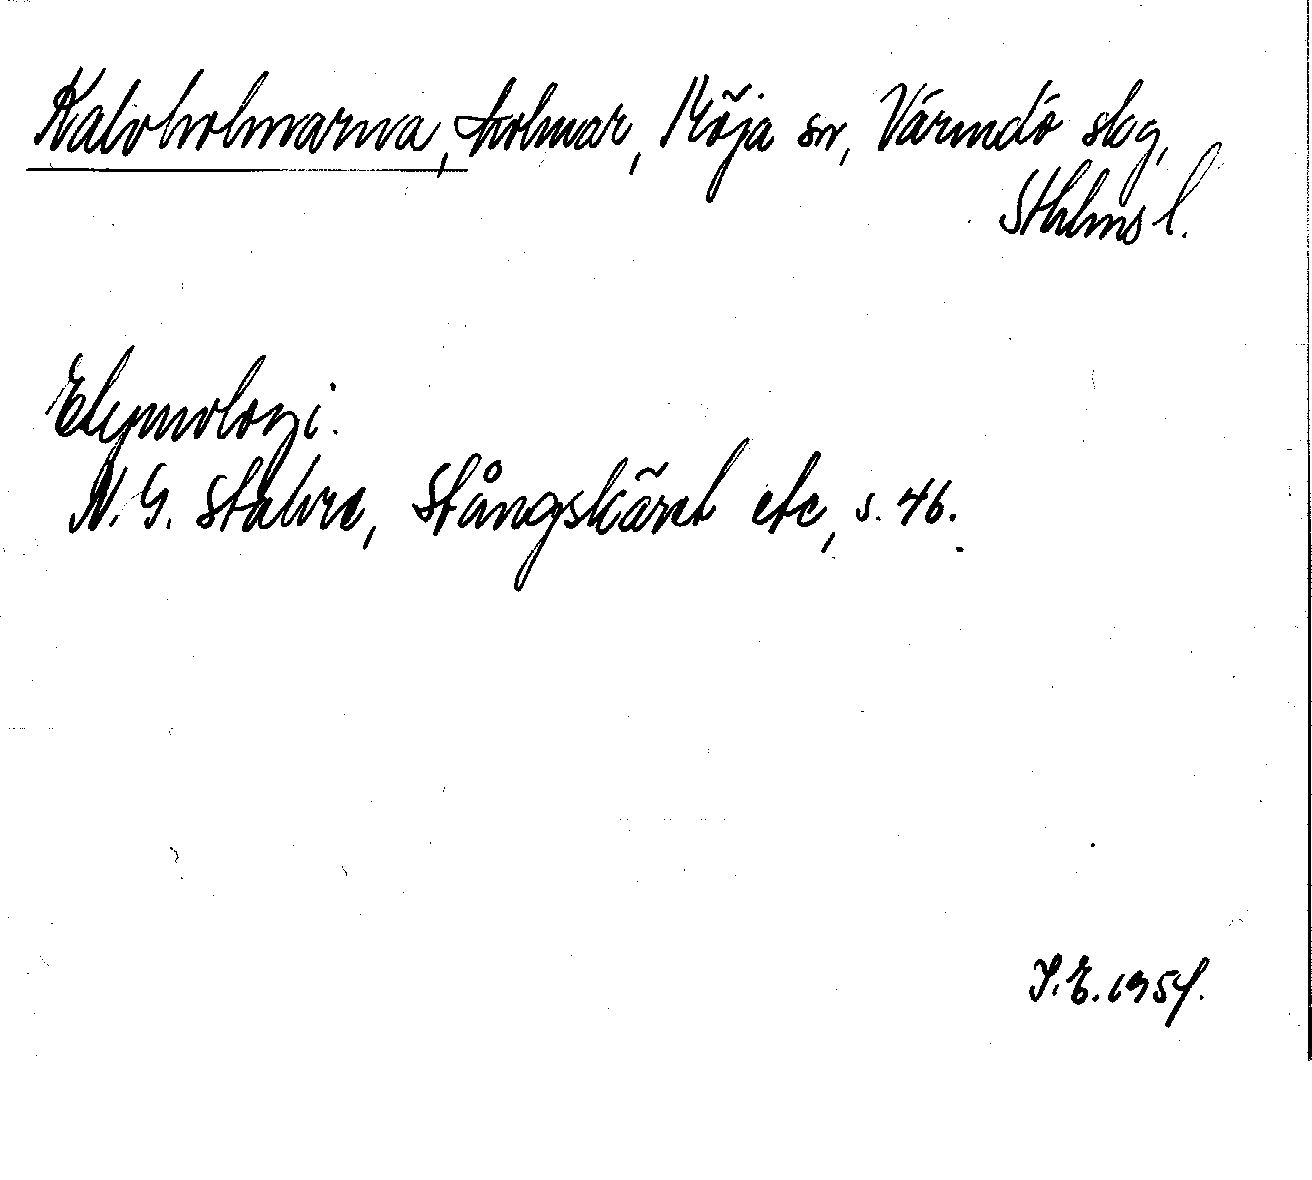 Kalvholmarna, holmar, Möja sn, Värmdö skg,
Sthlms l.
Etymologi.
N. G. Stahre, Stångskäret etc, s. 46.
S. E. 1954.